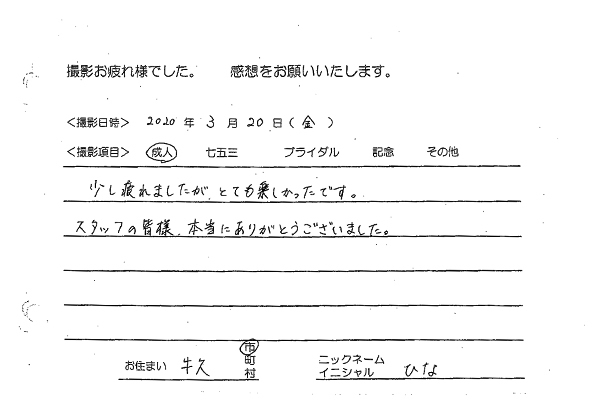 撮影お疲れ様でした。　感想をお願いいたします。
＜撮影日時＞ 2020 年 3 月 20 日（金）
＜撮影項目＞ 成人　七五三　ブライダル　記念　その他
少し疲れましたが、とても楽しかったです。
スタッフの皆様、本当にありがとうございました。
お住まい 牛久 市 町 村
ニックネーム イニシャル ひな